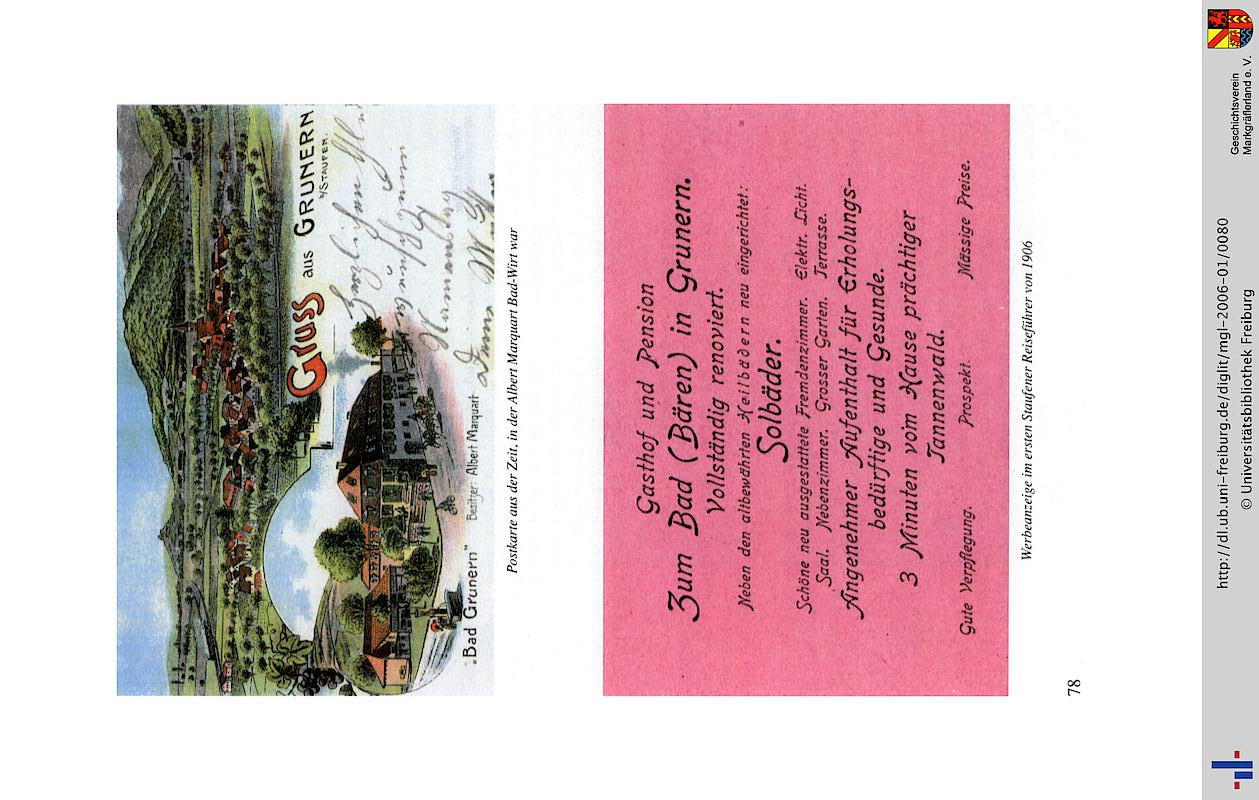 Gruss aus GRUNERN
b/STAUFEN.
"Bad Grunern" Besitzer Albert Marquart
Postkarte aus der Zeit, in der Albert Marquart Bad-Wirt war
Gasthof und Pension
Zum Bad (Bären) in Grunern.
Vollständig renoviert.
Neben den altbewährten Heilbädern neu eingerichtet:
Solbäder.
Schöne neu ausgestattete Fremdenzimmer. Elektr. Licht.
Saal. Nebenzimmer. Grosser Garten. Terrasse.
Angenehmer Aufenthalt für Erholungs-
bedürftige und Gesunde.
3 Minuten vom Hause prächtiger
Tannenwald.
Gute Verpflegung. Prospekt. Mässige Preise.
Werbeanzeige im ersten Staufener Reiseführer von 1906
78
http://dl.ub.uni-freiburg.de/diglit/mgl-2006-01/0080
© Universitätsbibliothek Freiburg
Geschichtsverein
Markgräflerland e. V.